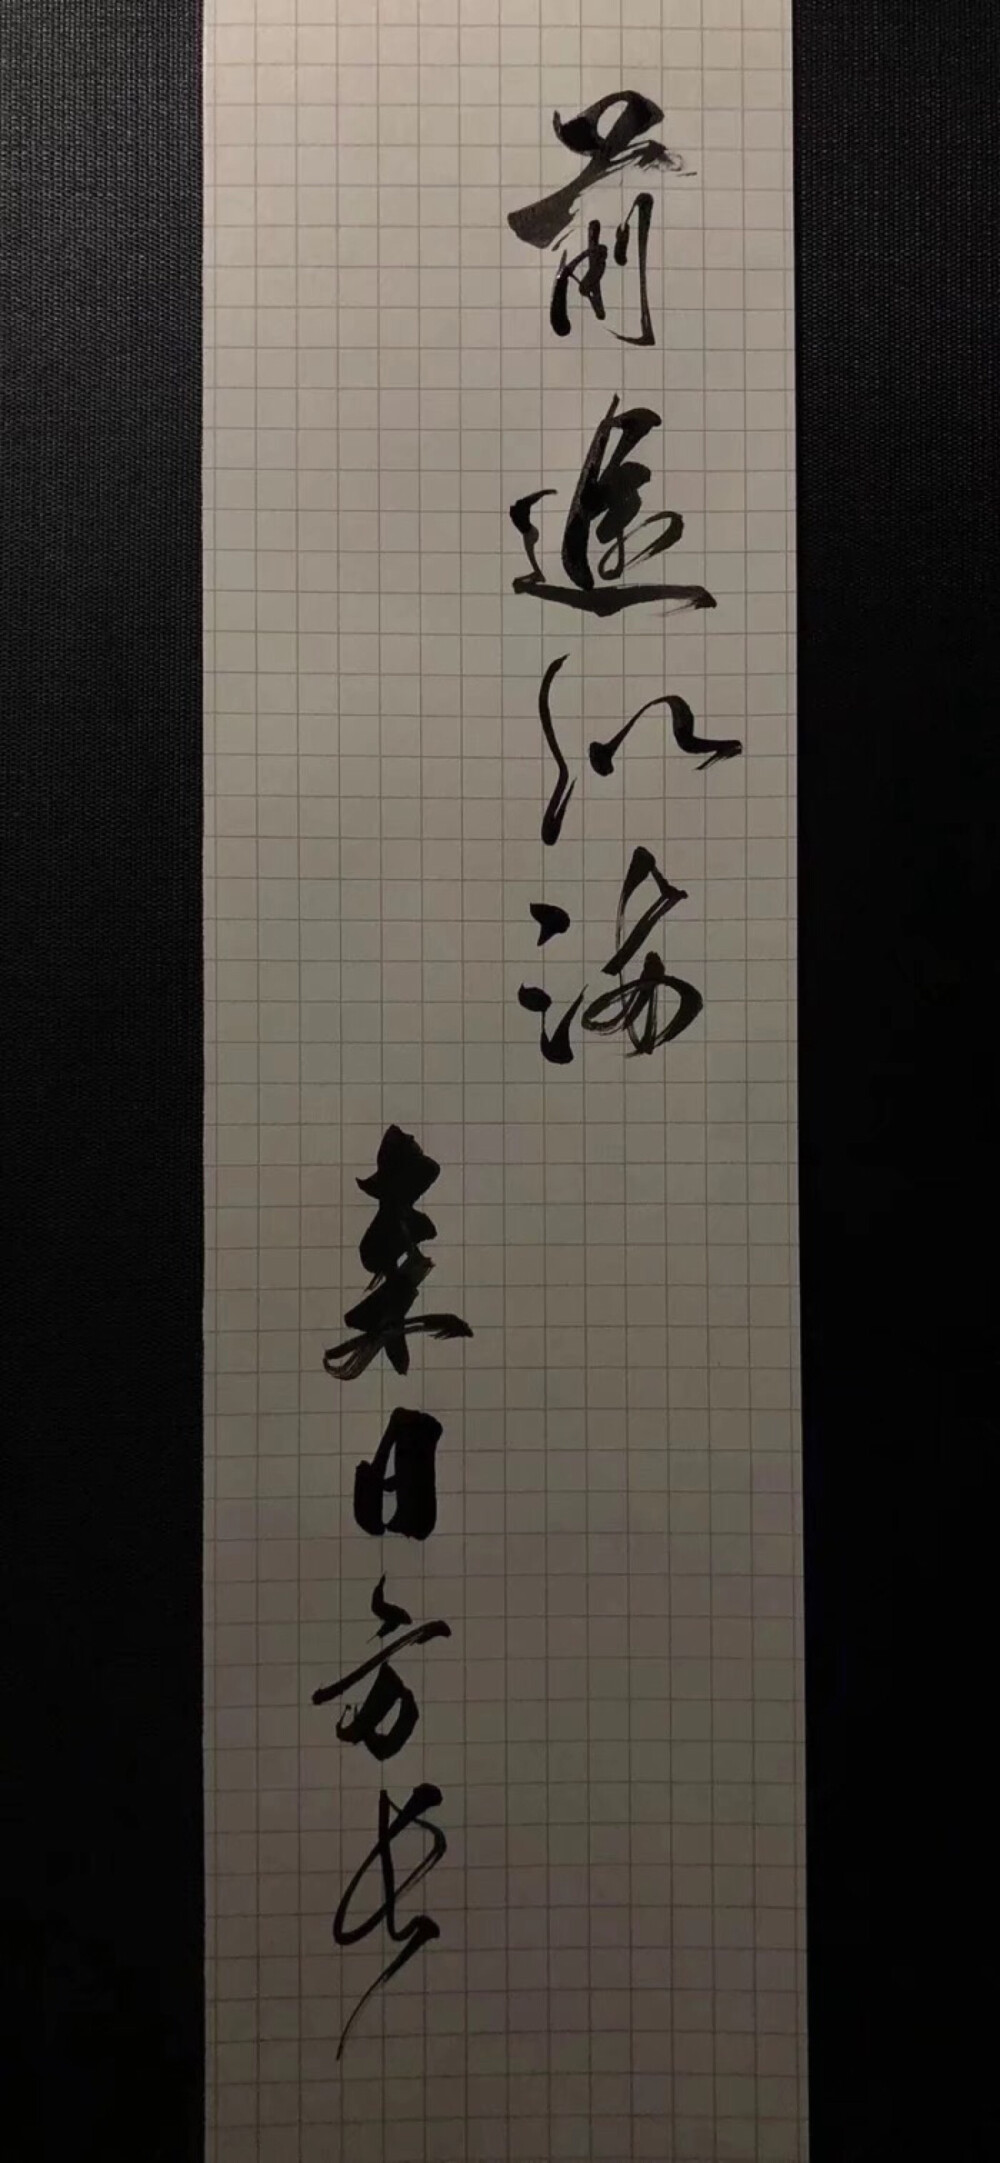 前途似海
来日方长